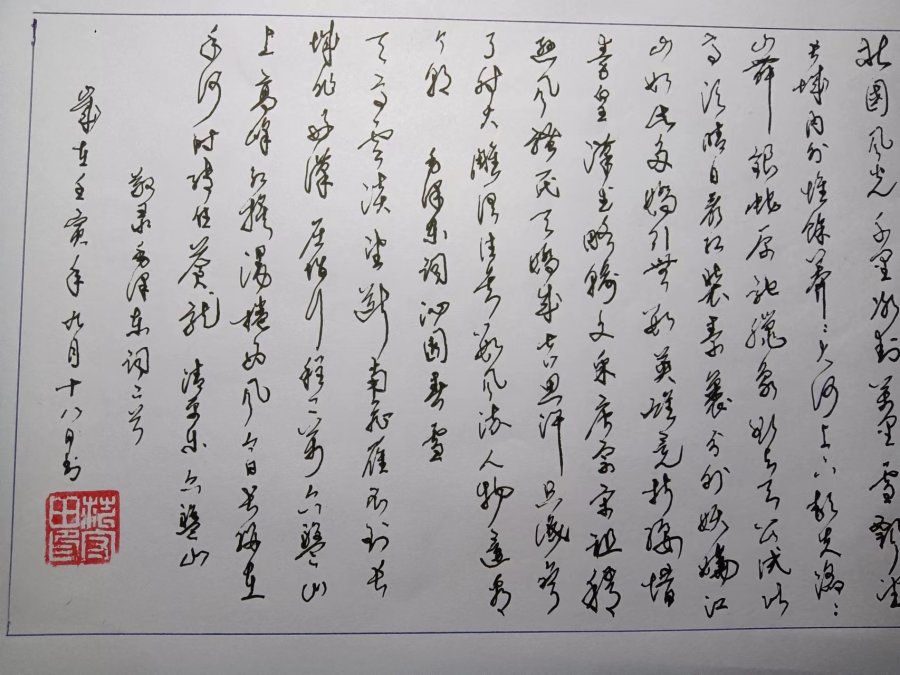 北国风光千里冰封万里雪飘望
长城内外惟馀莽〻大河上下顿失滔〻
山舞银蛇原驰腊象欲与天公试比
高须晴日看红装素裹分外妖娆江
山如此多娇引无数英雄竞折腰惜
秦皇汉武略输文采唐宗宋祖稍
逊风骚一代天娇成吉思汗只识弯
弓射大雕俱往矣数风流人物还看
今朝 毛泽东词沁园春雪
天高云淡望断南飞雁不到长
城非好汉屈指行程二万六盘山
上高峰红旗漫卷西风今日长缨在
手何时缚住苍龙 清平乐六盘山
敬录毛泽东词二首
岁在壬寅年九月十八日书